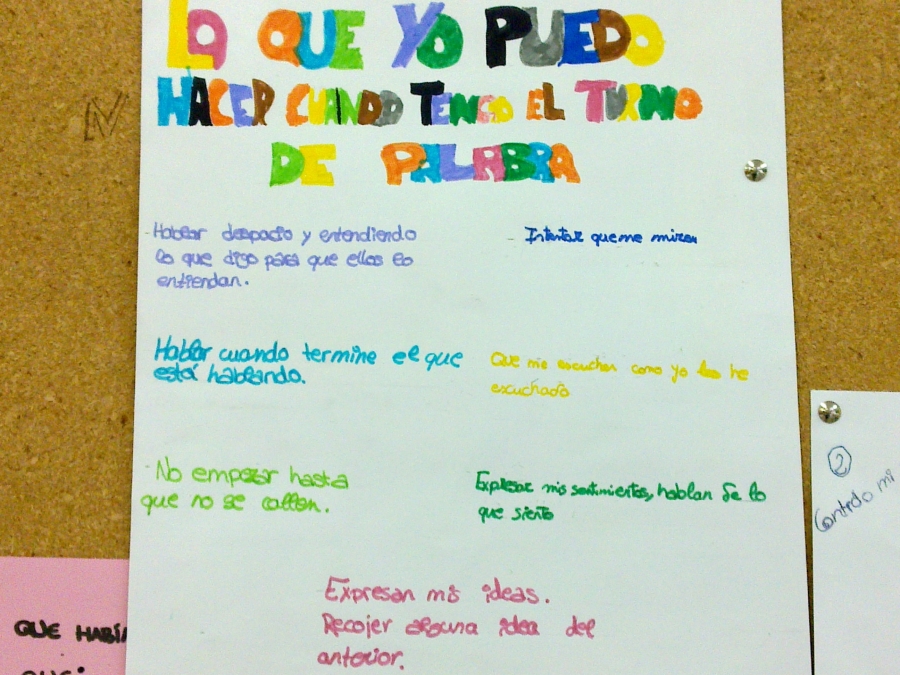 LO QUE YO PUEDO
HACER CUANDO TENGO EL TURNO
DE PALABRA
- Hablar despacio y entendiendo
lo que digo para que ellos lo
entiendan.
- Intentar que me miren
Hablar cuando termine el que
está hablando.
Que me escuchen como yo los he
escuchado
- No empezar hasta
que no se callen.
Expresar mis sentimientos, hablar de lo
que siento
Expresar mis ideas.
Recojer alguna idea del
anterior.
N
QUE HABÍA
2
Controlo mi